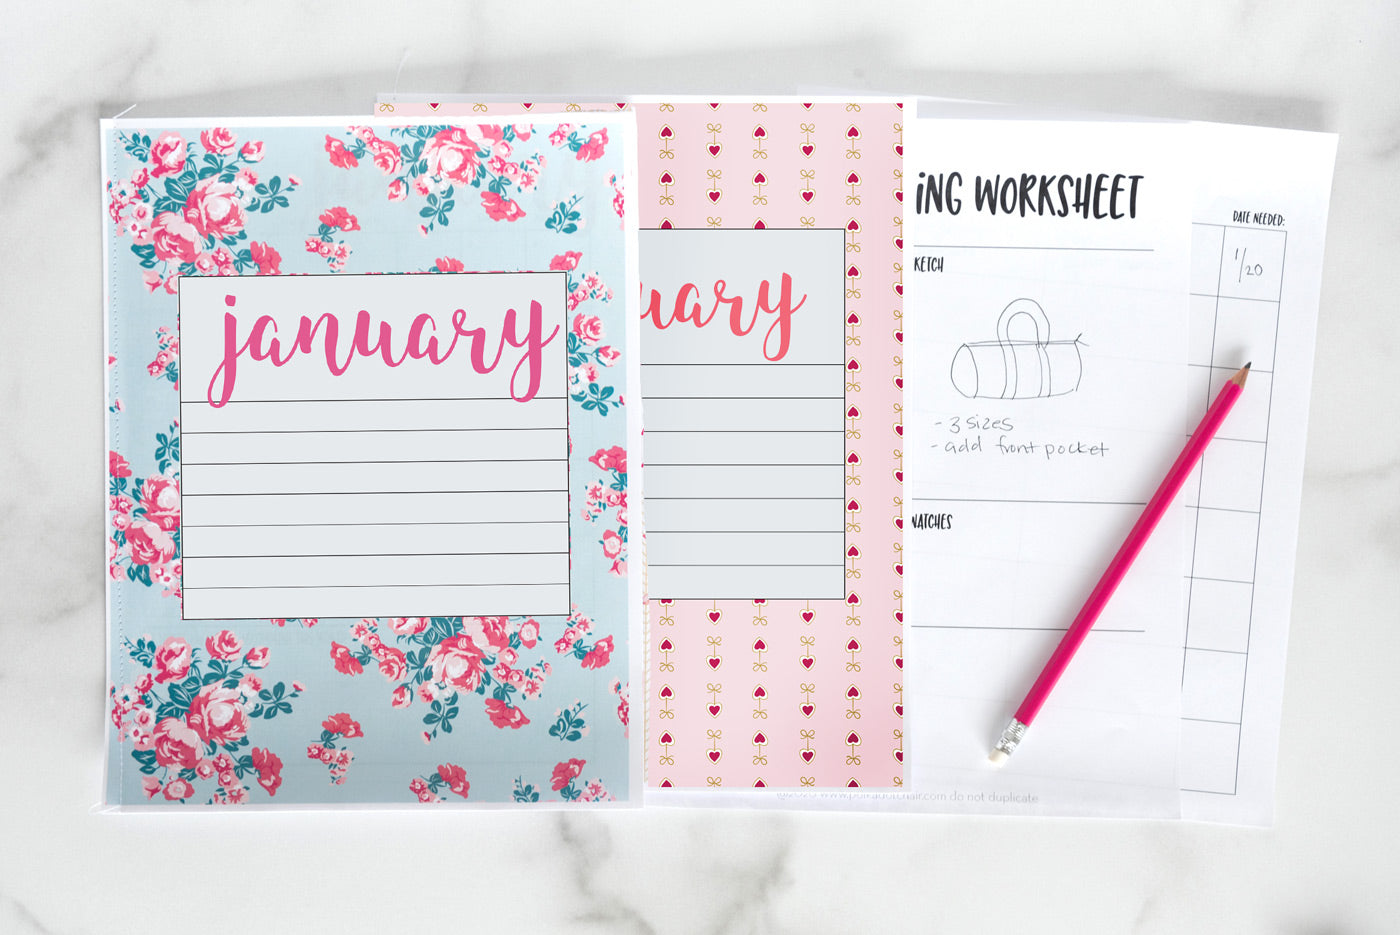 january
uary
ING WORKSHEET
KETCH
- 3 sizes
- add front pocket
ATCHES
DATE NEEDED:
1/20
©2020 www.polkadotchair.com do not duplicate